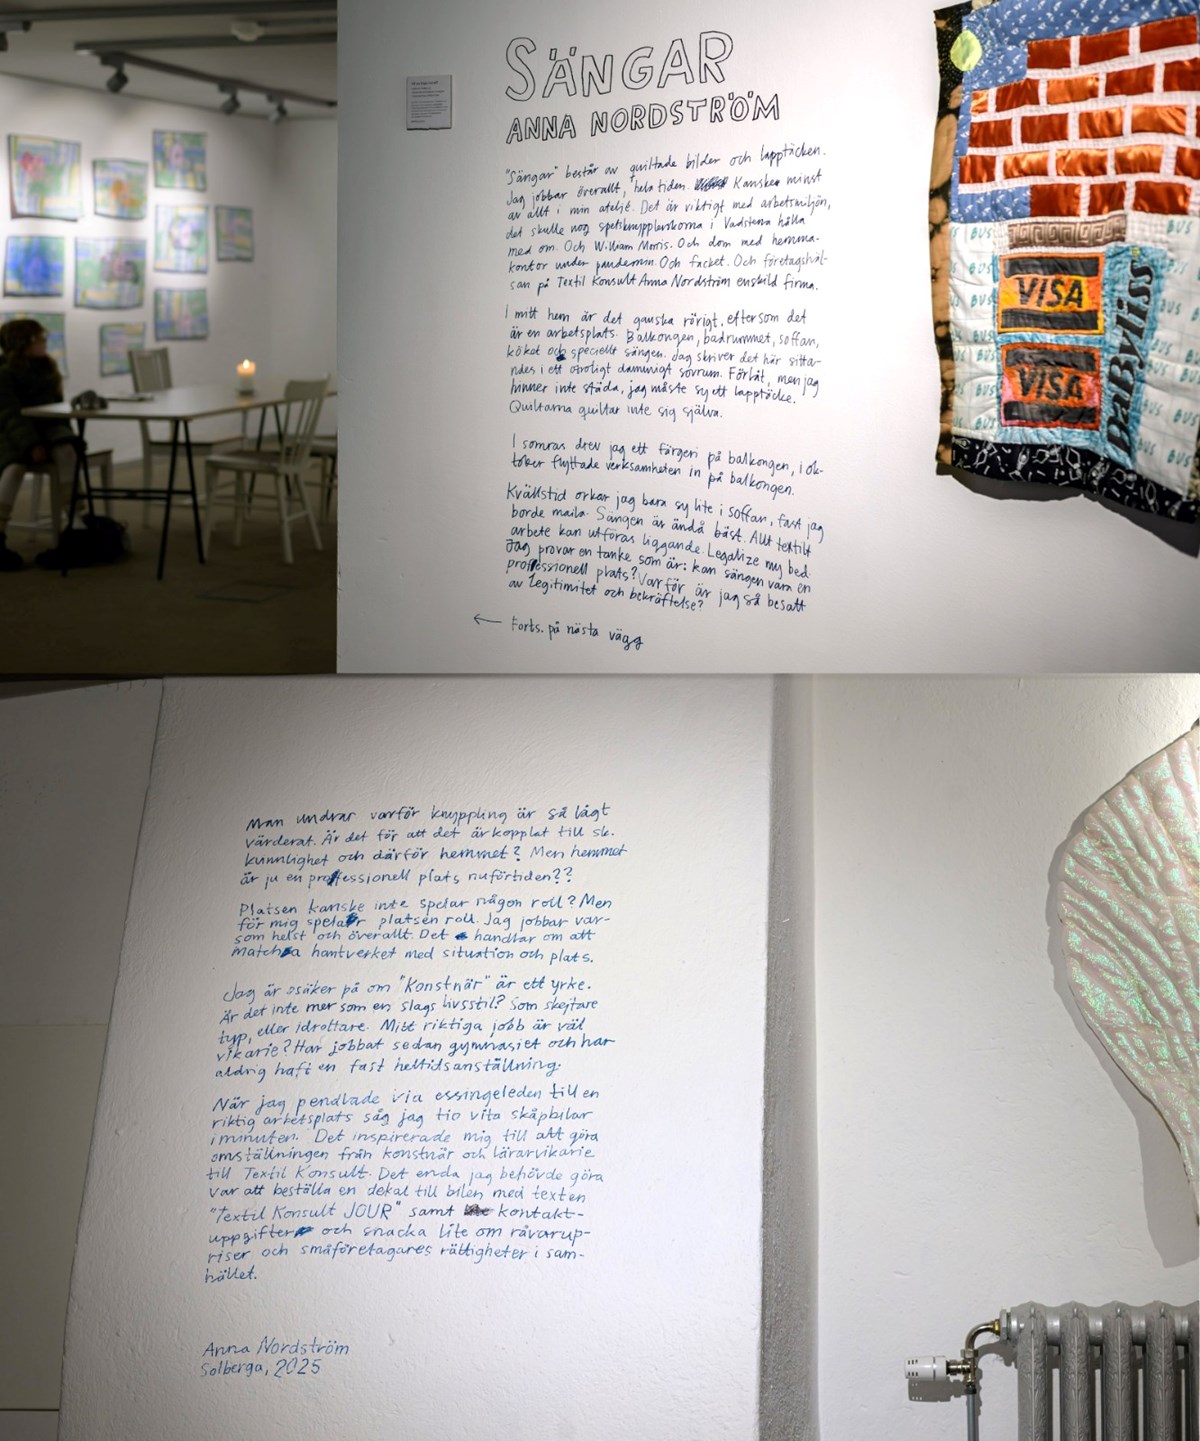 SÄNGAR
ANNA NORDSTRÖM
"Sängar" består av quiltade bilder och lapptäcken.
Jag jobbar överallt, hela tiden. Kanske minst
av allt i min ateljé. Det är viktigt med arbetsmiljön,
det skulle nog spetsknypplerskorna i Vadstena hålla
med om. Och William Morris. Och dom med hemma-
kontor under pandemin. Och facket. Och företagshäl-
san på Textil Konsult Anna Nordström enskild firma.
I mitt hem är det ganska rörigt, eftersom det
är en arbetsplats. Balkongen, badrummet, soffan,
köket och speciellt sängen. Jag skriver det här sitta-
ndes i ett otroligt dammigt sovrum. Förlåt, men jag
hinner inte städa, jag måste sy ett lapptäcke.
Quiltarna quiltar inte sig själva.
I somras drev jag ett färgeri på balkongen, i ok-
tober flyttade verksamheten in på balkongen.
Kvällstid orkar jag bara sy lite i soffan, fast jag
borde maila. Sängen är ändå bäst. Allt textilt
arbete kan utföras liggande. Legalize my bed
Jag provar en tanke som är: kan sängen vara en
professionell plats? Varför är jag så besatt
av legitimitet och bekräftelse?
← Forts. på nästa vägg
VISA
VISA
BaByliss
BUS
BUS
BUS
BUS
BUS
BUS
Man undrar varför knyppling är så lågt
värderat. Är det för att det är kopplat till sk.
kvinnlighet och därför hemmet? Men hemmet
är ju en professionell plats nuförtiden??
Platsen kanske inte spelar någon roll? Men
för mig spelar platsen roll. Jag jobbar var-
som helst och överallt. Det handlar om att
matcha hantverket med situation och plats.
Jag är osäker på om "Konstnär" är ett yrke.
Är det inte mer som en slags livsstil? Som skejtare
typ, eller idrottare. Mitt riktiga jobb är väl
vikarie? Har jobbat sedan gymnasiet och har
aldrig haft en fast heltidsanställning.
När jag pendlade via essingeleden till en
riktig arbetsplats såg jag tio vita skåpbilar
i minuten. Det inspirerade mig till att göra
omställningen från konstnär och lärarvikarie
till Textil Konsult. Det enda jag behövde göra
var att beställa en dekal till bilen med texten
"Textil Konsult JOUR" samt kontakt-
uppgifter och snacka lite om råvarup-
riser och småföretagares rättigheter i sam-
hället.
Anna Nordström
Solberga, 2025